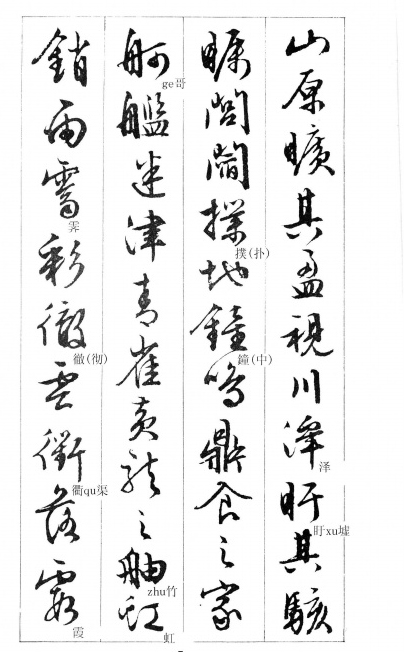 山原曠其盈視川澤盱其駭
泽
盱xu墟
矚閭閻撲地鐘鳴鼎食之家
撲(扑)
鐘(中)
舸艦迷津青雀黃龍之舳虹
ge哥
zhu竹
虹
銷雨霽彩徹雲衢落霞
霁
徹(彻)
衢qu渠
霞